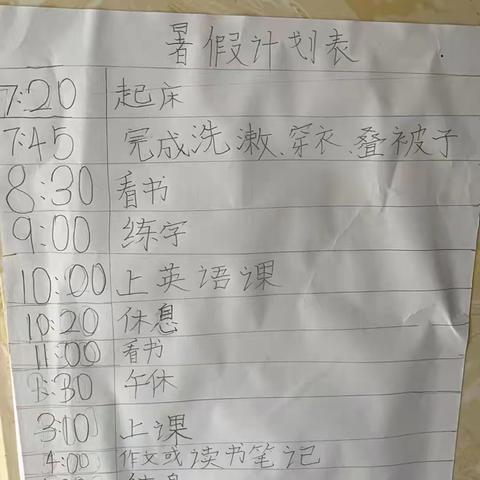 暑假计划表
7:20 起床
7:45 完成洗漱、穿衣、叠被子
8:30 看书
9:00 练字
10:00 上英语课
10:20 休息
11:00 看书
1:30 午休
3:10 上课
4:00 作文或读书笔记